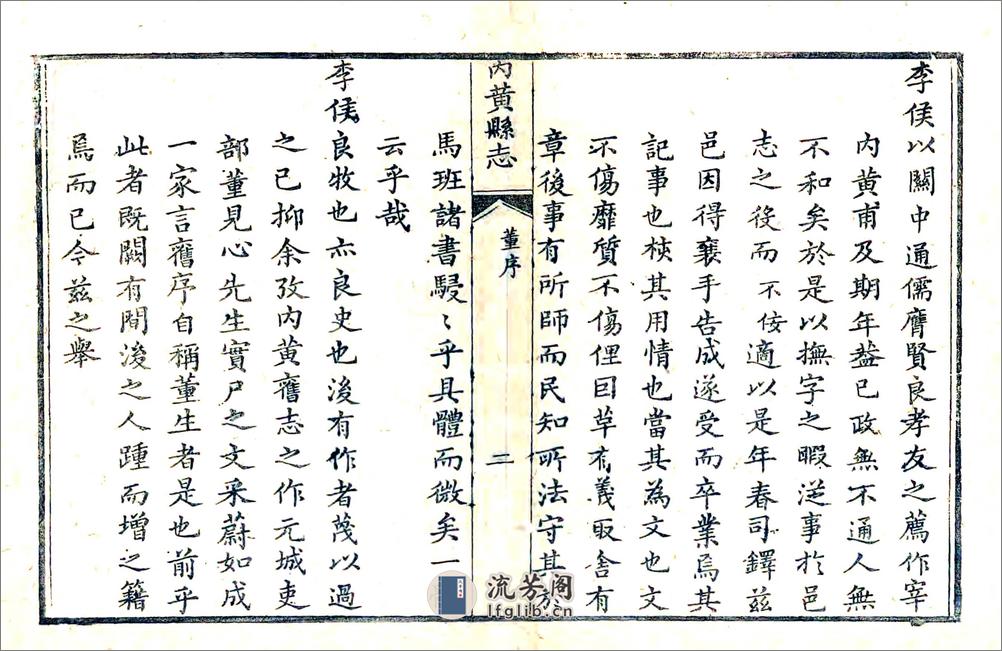 李侯以關中通儒膺賢良孝友之薦作宰
內黃甫及期年葢已政無不通人無
不和矣於是以撫字之暇從事於邑
志之後而不佞適以是年春司鐸茲
邑因得襄手告成遂受而卒業焉其
記事也核其用情也當其為文也文
不傷靡質不傷俚目草有義取舍有
章後事有所師而民知所法守其於
內黃縣志
董序
二
馬班諸書駸〻乎具體而微矣一
云乎哉
李侯良牧也亦良史也後有作者蔑以過
之已抑余攷內黃舊志之作元城吏
部董見心先生實尸之文采蔚如成
一家言舊序自稱董生者是也前乎
此者既闕有間後之人踵而增之籍
焉而已今茲之舉
流芳阁
lfglib.cn